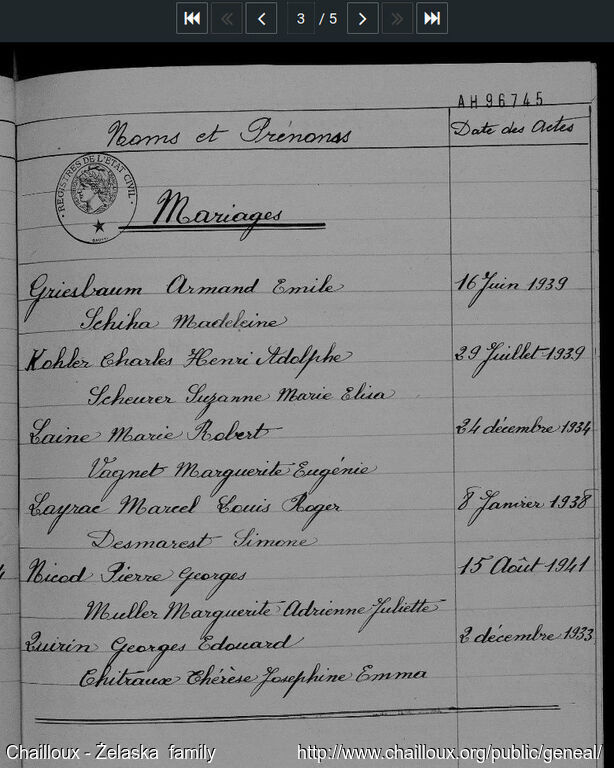 3 / 5
AH96745
Noms et Prénoms
Date des Actes
REGISTRES DE L'ETAT CIVIL
Mariages
Griesbaum Armand Emile 16 Juin 1939
Schiha Madeleine
Kohler Charles Henri Adolphe 29 Juillet 1939
Scheurer Suzanne Marie Elisa
Laine Marie Robert 24 décembre 1934
Vagnet Marguerite Eugénie
Layrac Marcel Louis Roger 8 Janvier 1938
Desmarest Simone
Nicod Pierre Georges 15 Août 1941
Muller Marguerite Adrienne Juliette
Quirin Georges Edouard 2 décembre 1933
Chitraux Thérèse Josephine Emma
Chailloux - Żelaska family http://www.chailloux.org/public/geneal/